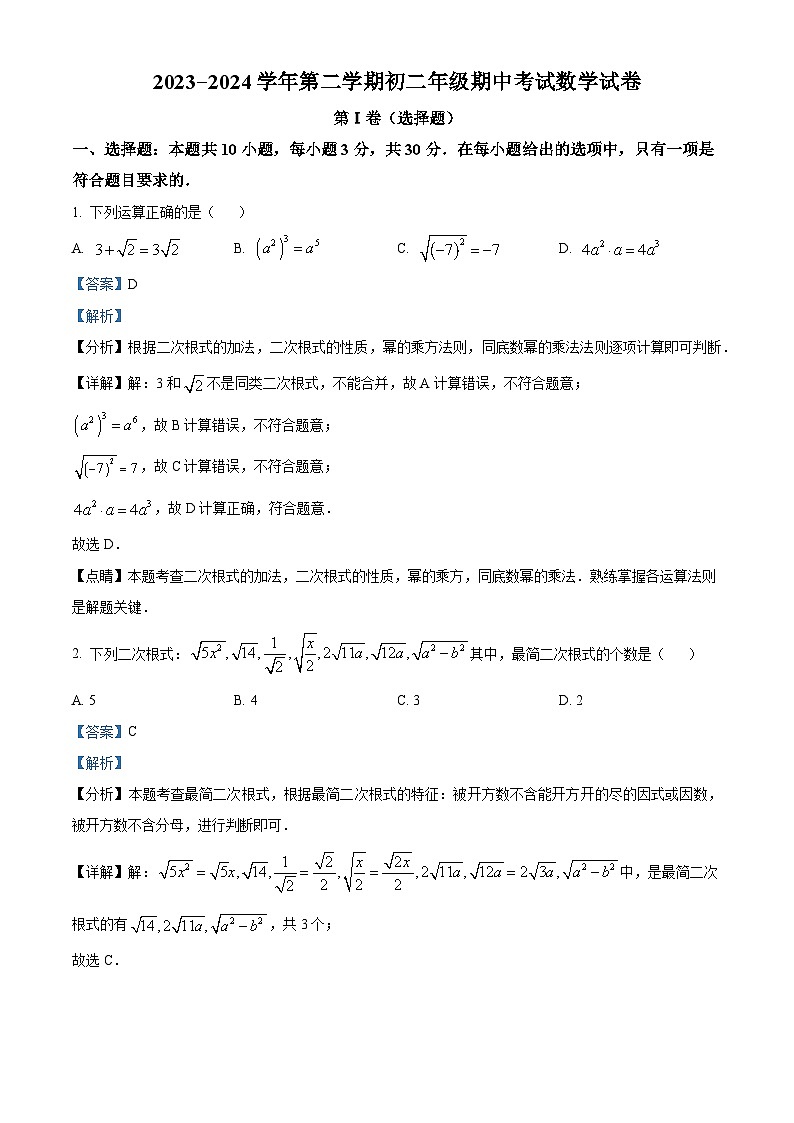 2023−2024 学年第二学期初二年级期中考试数学试卷
第 I 卷（选择题）
一、选择题：本题共 10 小题，每小题 3 分，共 30 分．在每小题给出的选项中，只有一项是
符合题目要求的．
1. 下列运算正确的是（　　）
A. 3+√2=3√2　B. (a²)³=a⁵　C. √(−7)²=−7　D. 4a²·a=4a³
【答案】D
【解析】
【分析】根据二次根式的加法，二次根式的性质，幂的乘方法则，同底数幂的乘法法则逐项计算即可判断．
【详解】解：3 和 √2 不是同类二次根式，不能合并，故 A 计算错误，不符合题意；
(a²)³=a⁶，故 B 计算错误，不符合题意；
√(−7)²=7，故 C 计算错误，不符合题意；
4a²·a=4a³，故 D 计算正确，符合题意．
故选 D．
【点睛】本题考查二次根式的加法，二次根式的性质，幂的乘方，同底数幂的乘法．熟练掌握各运算法则
是解题关键．
2. 下列二次根式：√5x²,√14,1/√2,√(x/2),2√11a,√12a,√(a²−b²) 其中，最简二次根式的个数是（　　）
A. 5　B. 4　C. 3　D. 2
【答案】C
【解析】
【分析】本题考查最简二次根式，根据最简二次根式的特征：被开方数不含能开方开的尽的因式或因数，
被开方数不含分母，进行判断即可．
【详解】解：√5x²=√5x,√14,1/√2=√2/2,√(x/2)=√2x/2,2√11a,√12a=2√3a,√(a²−b²) 中，是最简二次
根式的有 √14,2√11a,√(a²−b²)，共 3 个；
故选 C．